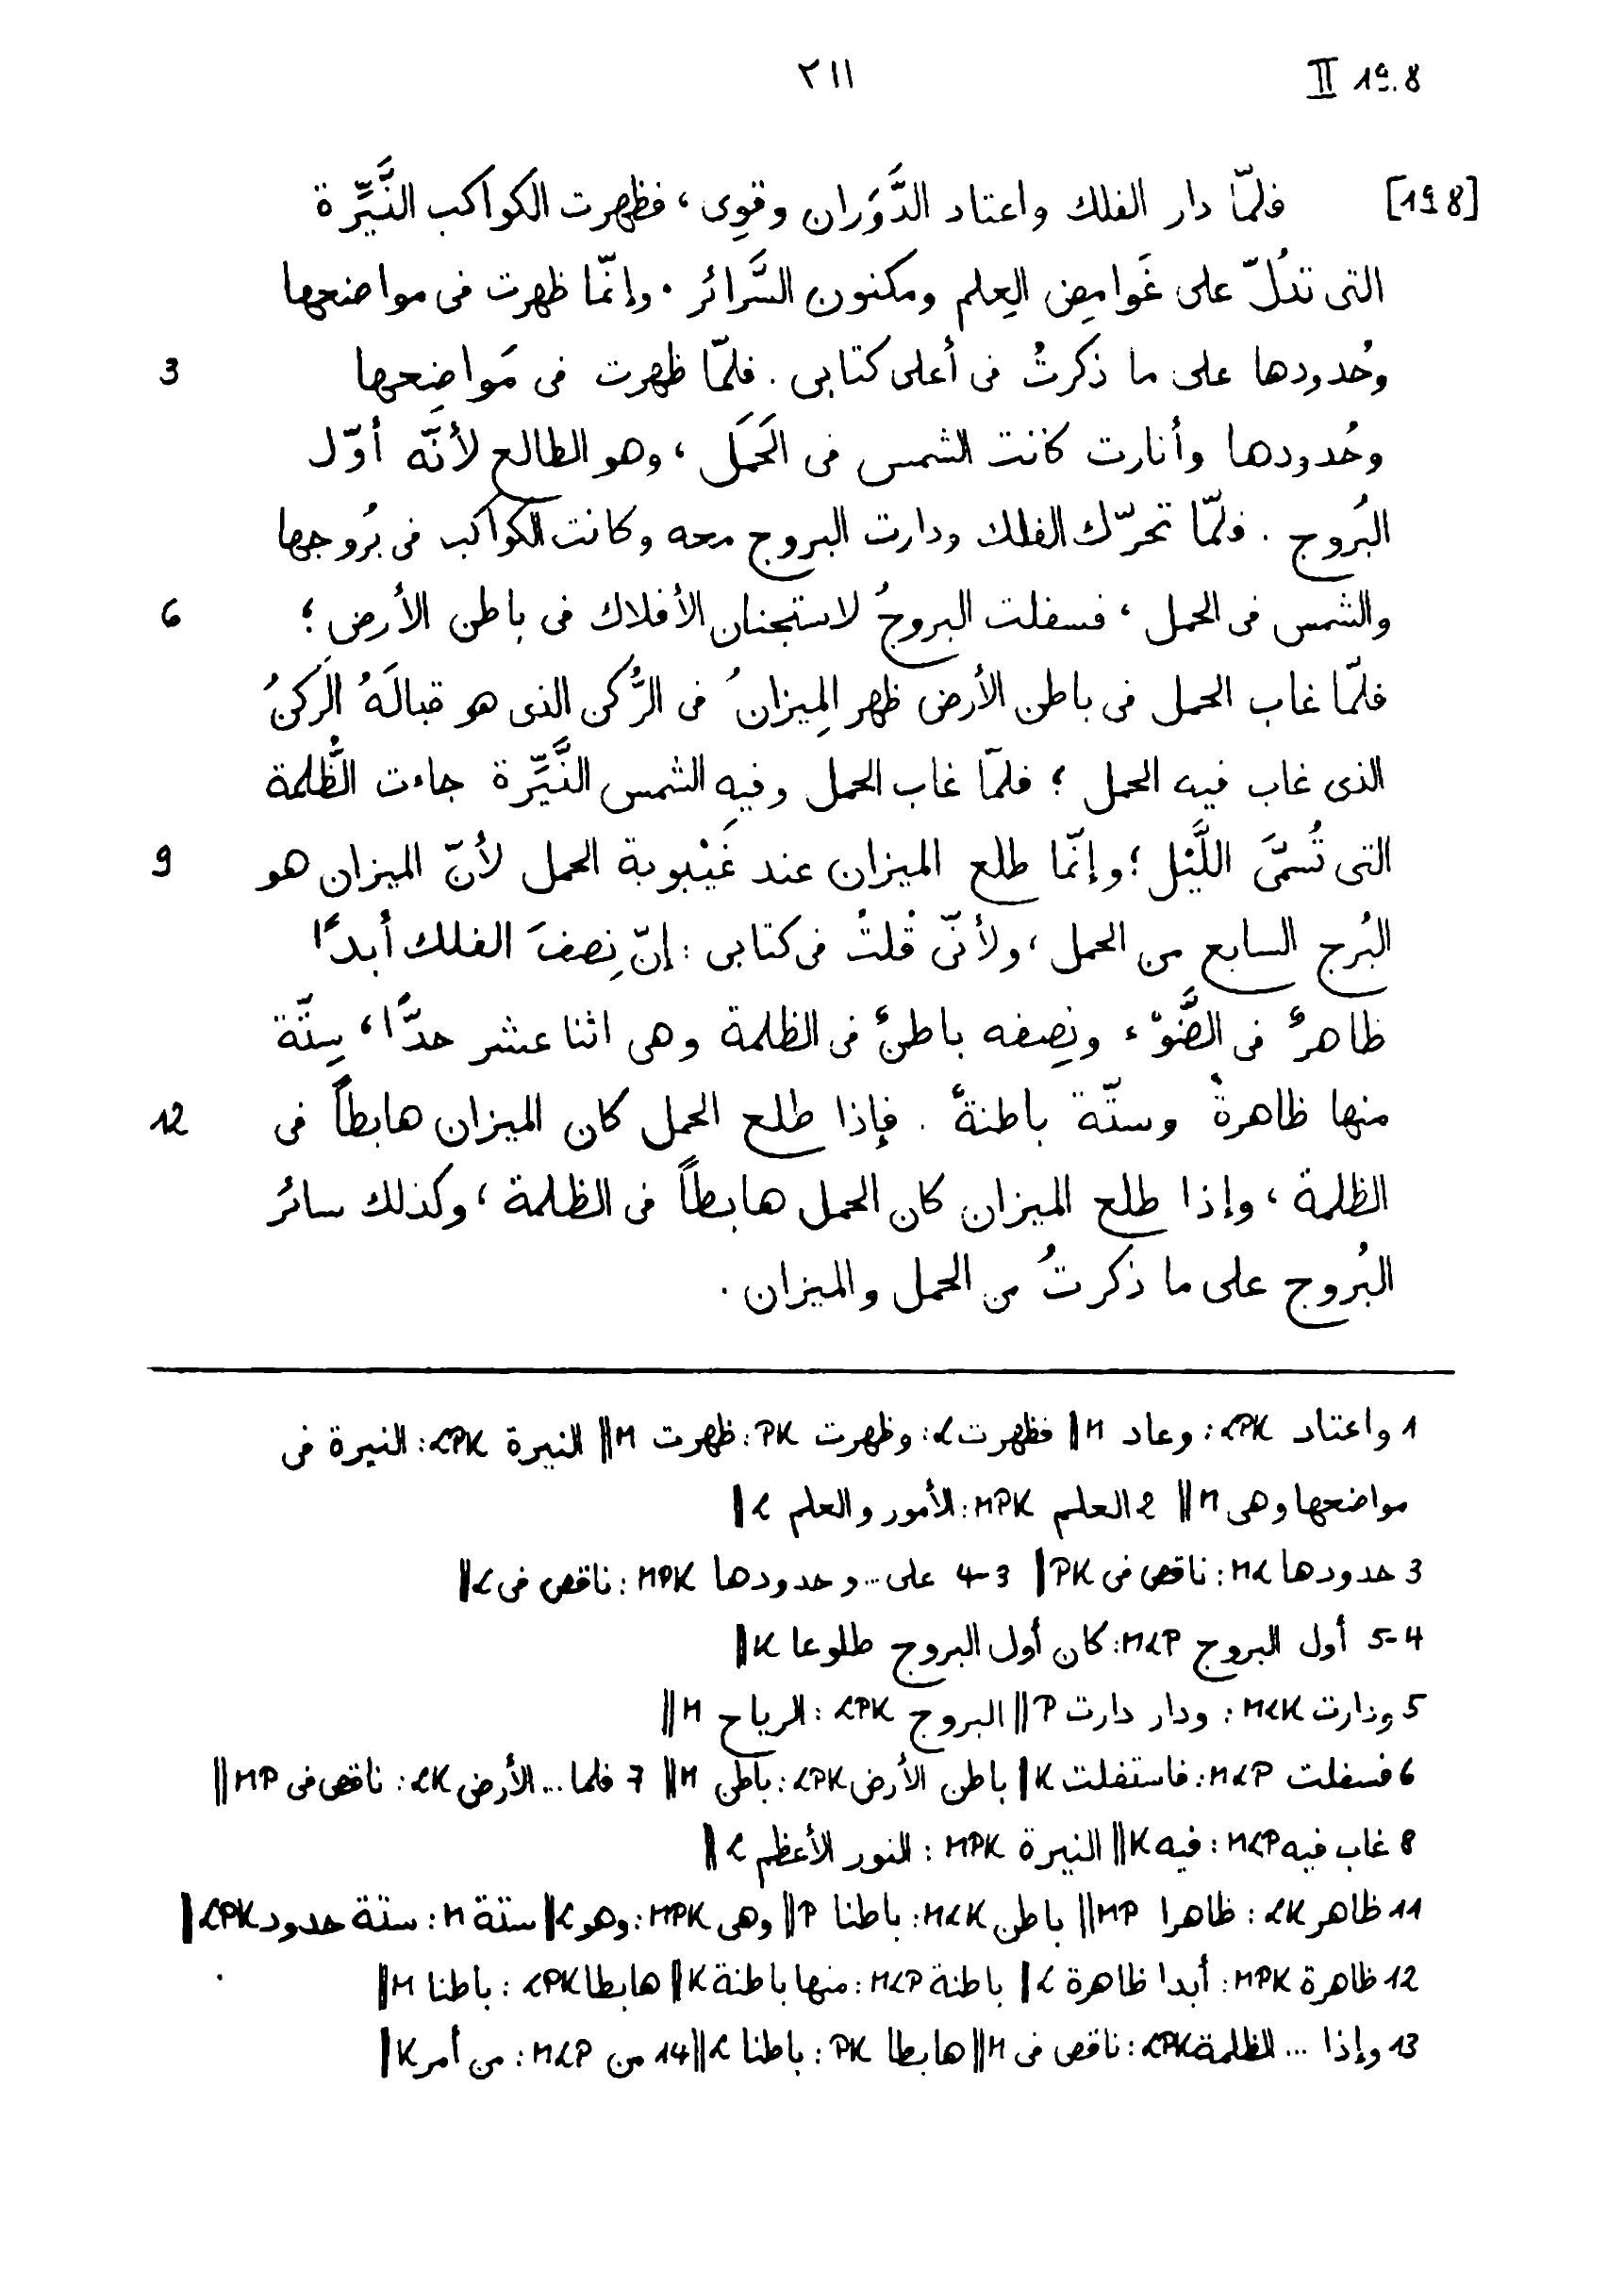 II 19.8 ٢١١
[19.8] فلمّا دار الفلك واعتاد الدَّوَران وقوِى، فظهرت الكواكب النَّيِّرة
التى تدُلّ على غَوامِض العِلم ومكنون السَّرائر. وإنّما ظهرت فى مواضعها
وحُدودها على ما ذكرتُ فى أعلى كتابى. فلمّا ظهرت فى مَواضِعها 3
وحُدودها وأنارت كانت الشمس فى الحَمَل، وهو الطالع لأنّه أوّل
البُروج. فلمّا تحرّك الفلك ودارت البروج معه وكانت الكواكب فى بُروجها
والشمس فى الحمل، فسفلت البروجُ لاستجنان الأفلاك فى باطن الأرض؛ 6
فلمّا غاب الحمل فى باطن الأرض ظهر المِيزانُ فى الرُّكن الذى هو قبالَهُ الرَكنُ
الذى غاب فيه الحمل؛ فلمّا غاب الحمل وفيهِ الشمس النَّيِّرة جاءت الظُّلمة
التى تُسمَّى اللَّيْل؛ وإنّما طلع الميزان عند غَيْبوبة الحمل لأنّ الميزان هو 9
البُرج السابع من الحمل، ولأنّى قُلتُ فى كتابى: إنّ نِصفَ الفلك أبدًا
ظاهرٌ فى الضَّوْء ونِصفه باطنٌ فى الظلمة وهى اثنا عشر حدًّا، سِتّة
منها ظاهرةٌ وستّة باطنةٌ. فإذا طلع الحمل كان الميزان هابطاً فى 12
الظلمة، وإذا طلع الميزان كان الحمل هابطاً فى الظلمة، وكذلك سائرُ
البُروج على ما ذكرتُ من الحمل والميزان.
1 واعتاد LPK: وعاد M ‖ فظهرت L: وظهرت PK: ظهرت M ‖ النيرة LPK: النيرة فى
مواضعها وهى M ‖ 2 العلم MPK: الأمور والعلم L ‖
3 حدودها ML: ناقص فى PK ‖ 3-4 على... وحدودها MPK: ناقص فى L ‖
4-5 أول البروج MLP: كان أول البروج طلوعا K ‖
5 ودارت MLK: ودار دارت P ‖ البروج LPK: الرياح M ‖
6 فسفلت MLP: فاستفلت K ‖ باطن الأرض LPK: باطن M ‖ 7 فلما... الأرض LK: ناقص فى MP ‖
8 غاب فيه MLP: فيه K ‖ النيرة MPK: النور الأعظم L ‖
11 ظاهر LK: ظاهرا MP ‖ باطن MLK: باطنا P ‖ وهى MPK: وهو L ‖ ستة M: ستة حدود LPK ‖
12 ظاهرة MPK: أبدا ظاهرة L ‖ باطنة MLP: منها باطنة K ‖ هابطا LPK: باطنا M ‖
13 وإذا ... الظلمة LPK: ناقص فى M ‖ هابطا PK: باطنا L ‖ 14 من MLP: من أمر K ‖